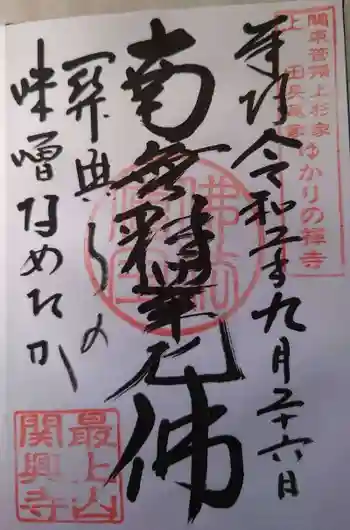 関東管領上杉家ゆかりの禅寺
奉拝 令和二年九月二十六日
南無釋迦牟尼佛
関興寺の
味噌なめたか
佛法僧宝
最上山
関興寺